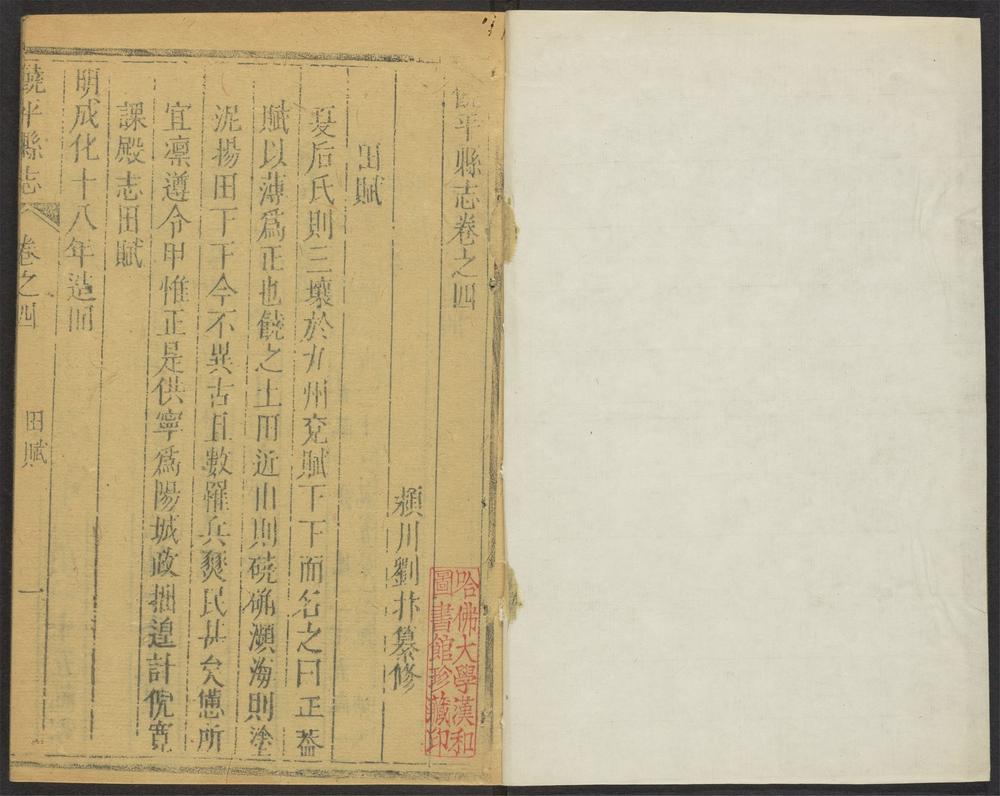 饒平縣志卷之四
潁川劉抃纂修
田賦
夏后氏則三壤於九州兗賦下下而名之曰正蓋
賦以薄爲正也饒之土田近山則磽确瀕海則塗
泥揚田下下今不異古且數罹兵燹民甚矣憊所
宜凛遵令甲惟正是供寧爲陽城政拙遑計倪寬
課殿志田賦
明成化十八年造冊
饒平縣志
卷之四
田賦
一
哈佛大學漢和
圖書館珍藏印